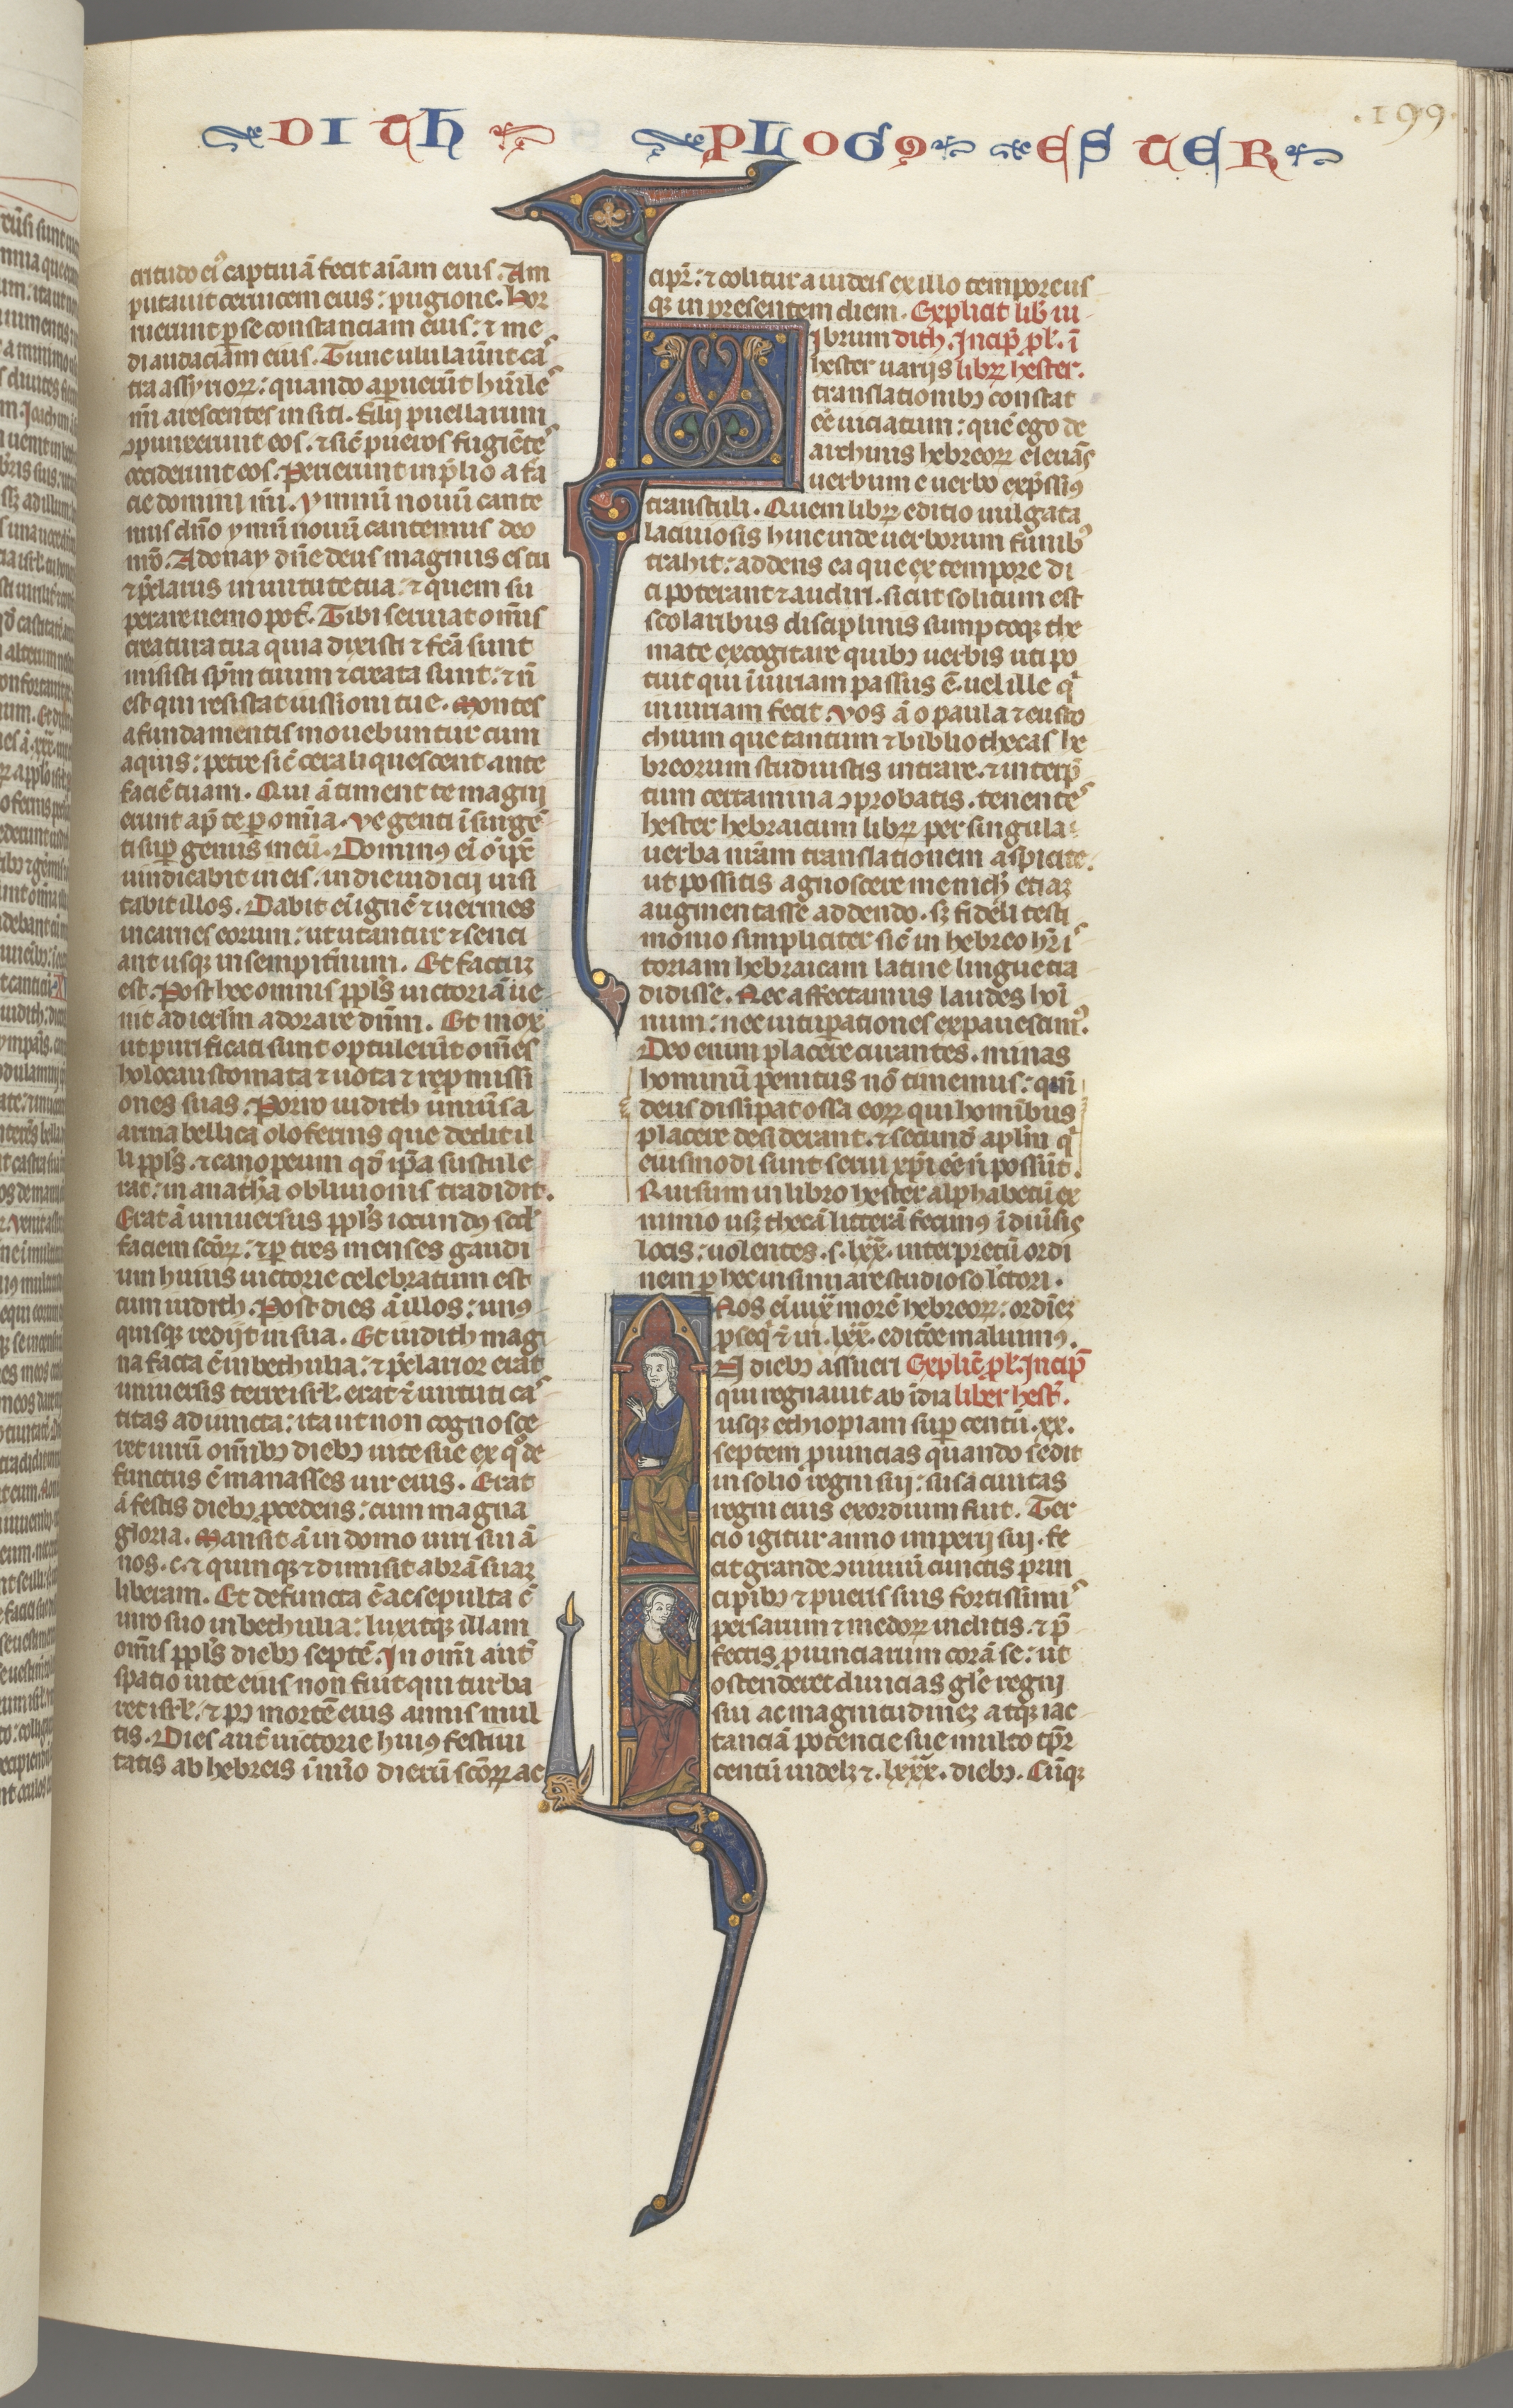 DITH
PLOG9 ESTER
.199.
citudo ei᾽ captiuā fecit aīam eius. Am
putauit ceruicem eius: pugione. Hor
ruerunt p se constanciam eius: ⁊ me
di audaciam eius. Tunc ululauūt cas
tra assyrioꝝ: quando apueŕūt hūiles
m̄i arescentes in siti. filij puellarum
ↄpunxerunt eos. ⁊ sic̄ pueros fugiētes
occiderunt eos. Perierunt in p̄lio a fa
cie domini m̄i. ymnū nouū cante
mus dn̄o ymnū nouū cantemus deo
nr̄o. Adonay dn̄e deus magnus es tu
⁊ p̄clarus in uirtute tua: ⁊ quem su
perare nemo pot̄. Tibi seruiat om̄is
creatura tua quia dixisti ⁊ fc̄a sunt
misisti sp̄m tuum ⁊ creata sunt: ⁊ n̄
est qui resistat iussioni tue. Montes
a fundamentis mouebuntur cum
aquis: petre sic̄ cera liquescent ante
faciē tuam. Qui ā timent te magni
erunt ap̄ te p omnia. Ve genti īsurgē
ti sup genus meū. Dominꝰ eī oīpc̄
uindicabit in eis. in die iudicij uisi
tabit illos. Dabit eī ignē ⁊ uermes
in carnes eorum: ut utantur ⁊ senci
ant usqꝫ in sempit̄num. Et factuꝫ
est. Post hec omnis ppl̄s uictoriā ue
nit ad ierl̄m adorare dn̄m. Et mox
ut purificati sunt optulerūt om̄es
holocaustomata ⁊ uota ⁊ repmissi
ones suas. Porro iudith uniūsa
arma bellica olofernis que dedit il
li ppl̄s. ⁊ canopeum qd̄ ip̄a sustule
rat: in anathā obliuionis tradidit.
Erat ā uniuersus ppl̄s iocundꝰ scd̄
faciem sc̄oꝝ: ⁊ p tres menses gaudi
um huius uictorie celebratum est
cum iudith. Post dies ā illos: unꝰ
quisqꝫ redijt in sua. Et iudith mag
na facta ē in bethulia: ⁊ p̄clarior erat
uniuersis terre isrl̄. erat ⁊̄ uirtuti cas
titas adiuncta: ita ut non cognosce
ret uirū om̄ibꝫ diebꝫ uite sue ex qͦ de
functus ē manasses uir eius. Erat
ā festis diebꝫ pcedens: cum magna
gloria. Mansit ā in domo uiri sui ā
nos. c. ⁊ quinqꝫ ⁊ dimisit abrā suaꝫ
liberam. Et defuncta ē ac sepulta ē
uiro suo in bethulia: luxitqꝫ illam
om̄is ppl̄s diebꝫ septē. In om̄i aut̄
spatio uite eius non fuit qui turba
ret isrl̄. ⁊ pꝰ mortē eius annis mul
tis. Dies aut̄ uictorie huiꝰ festiui
tatis ab hebreis ī nūo dierū sc̄oꝝ ac
cipr̄: ⁊ colitur a iudeis ex illo tempore us
qꝫ in presentem diem. Explicit lib̄ iu
L ibrum dith. Incip̄ pl̄. ī
hester uarijs libꝝ hester.
translationibꝫ constat
ēē uiciatum: quē ego de
archiuis hebreoꝝ eleuās
uerbum e uerbo exp̄ssiꝰ
transtuli. Quem libꝝ editio uulgata
laciuiosis hinc inde uerborum funibꝰ
trahit: addens ea que ex tempore di
ci poterant ⁊ audiri. sicut solitum est
scolaribus disciplinis sumptoqꝫ the
mate excogitare quibꝫ uerbis uti po
tuit qui īiuriam passus ē. uel ille q̄
iniuriam fecit. Vos ā o paula ⁊ eusto
chium que tantum ⁊ bibliothecas he
breorum studuistis intrare. ⁊ interp̄
tum certamina ↄprobatis. tenentes
hester hebraicum libꝝ per singula
uerba nr̄am translationem aspicite.
ut possitis agnoscere me nich̄ etiaꝫ
augmentasse addendo. sꝫ fideli testi
monio simpliciter sic̄ in hebreo hr̄ is
toriam hebraicam latine lingue tra
didisse. Nec affectamus laudes hoī
num: nec uitupationes expauescimꝰ.
Deo enim placere curantes. minas
hominū penitus nō timemus: qn̄i
deus dissipat ossa eoꝝ qui hominibus
placere desiderant. ⁊ secund̄ apl̄m q̄
eiusmodi sunt serui xp̄i eē n̄ possūt.
Rursum in libro hester alphabetū ex
minio usqꝫ thecā litterā fecimꝰ ī diūsis
locis: uolentes. s. lxx. interpretū ordi
nem p hec insinuare studioso lectori.
Nos eī iux̄ morē hebreoꝝ: ordinēꝫ
pseq̄ ⁊̄ in. lxx. editōe maluimꝰ.
I N diebꝫ assueri Explic̄ pl̄. Incip̄
qui regnauit ab īdia liber hest̄.
usqꝫ ethiopiam sup centū. xx.
septem puincias quando sedit
in solio regni sui: susa ciuitas
regni eius exordium fuit. Ter
cio igitur anno imperij sui. fe
cit grande ↄuiuiū cunctis prin
cipibꝫ ⁊ pueris suis fortissimis
persarum ⁊ medoꝝ inclitis. ⁊ p̄
fectis puinciarum corā se: ut
ostenderet diuicias gl̄e regni
sui ac magnitudineꝫ atqꝫ iac
tanciā potencie sue multo tp̄r
centū uidelꝫ ⁊. lxxx. diebꝫ. Cūqꝫ